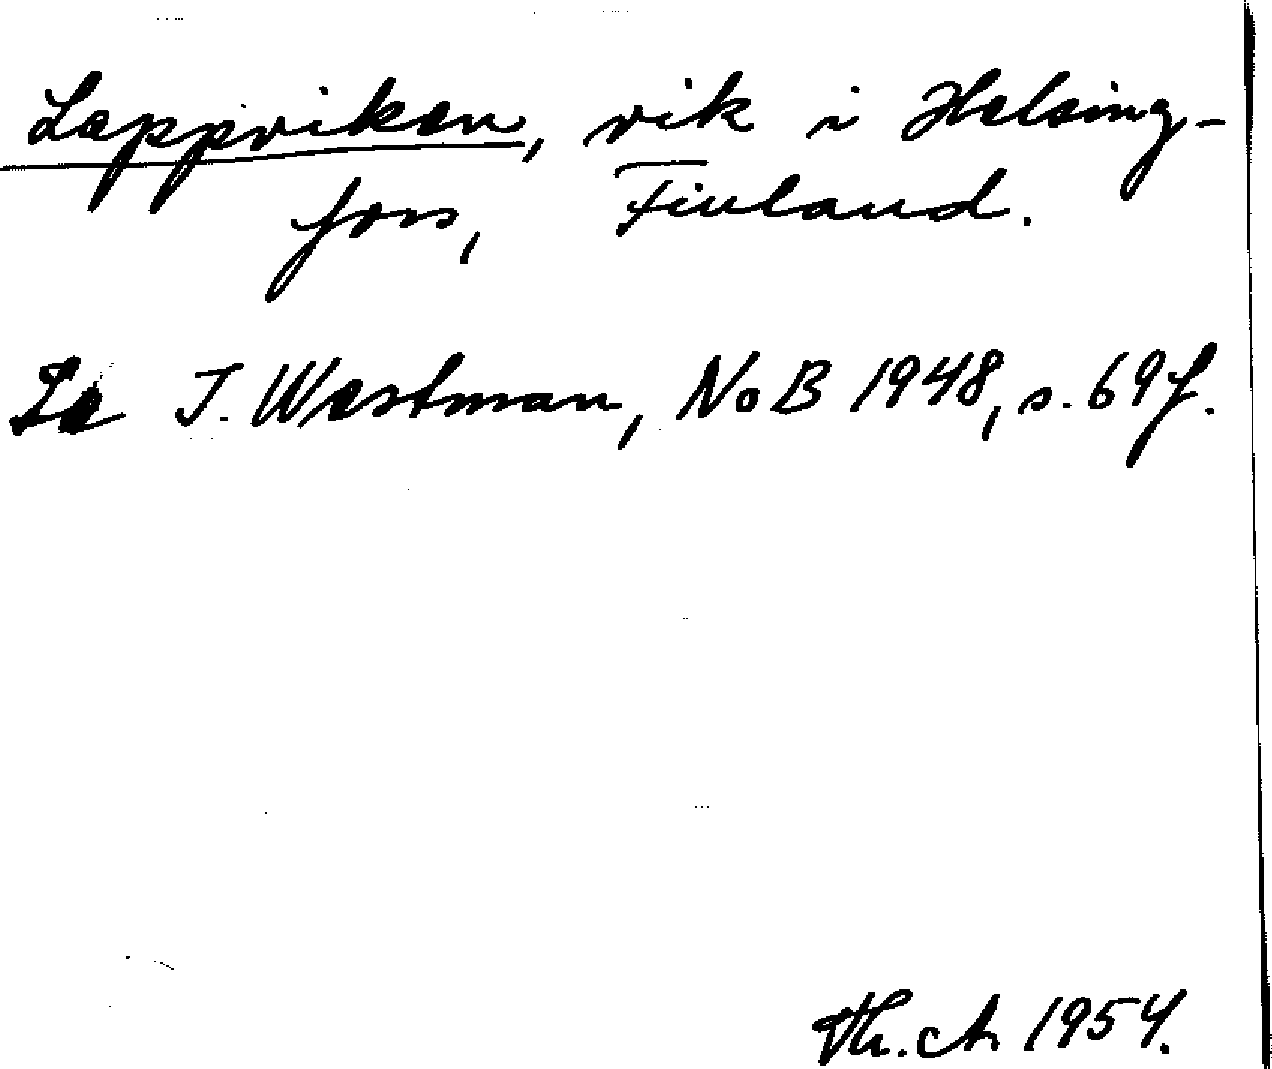 Lappviken, vik i Helsing-
fors, Finland.
Se I. Westman, NoB 1948, s. 69 f.
Th. A 1954.